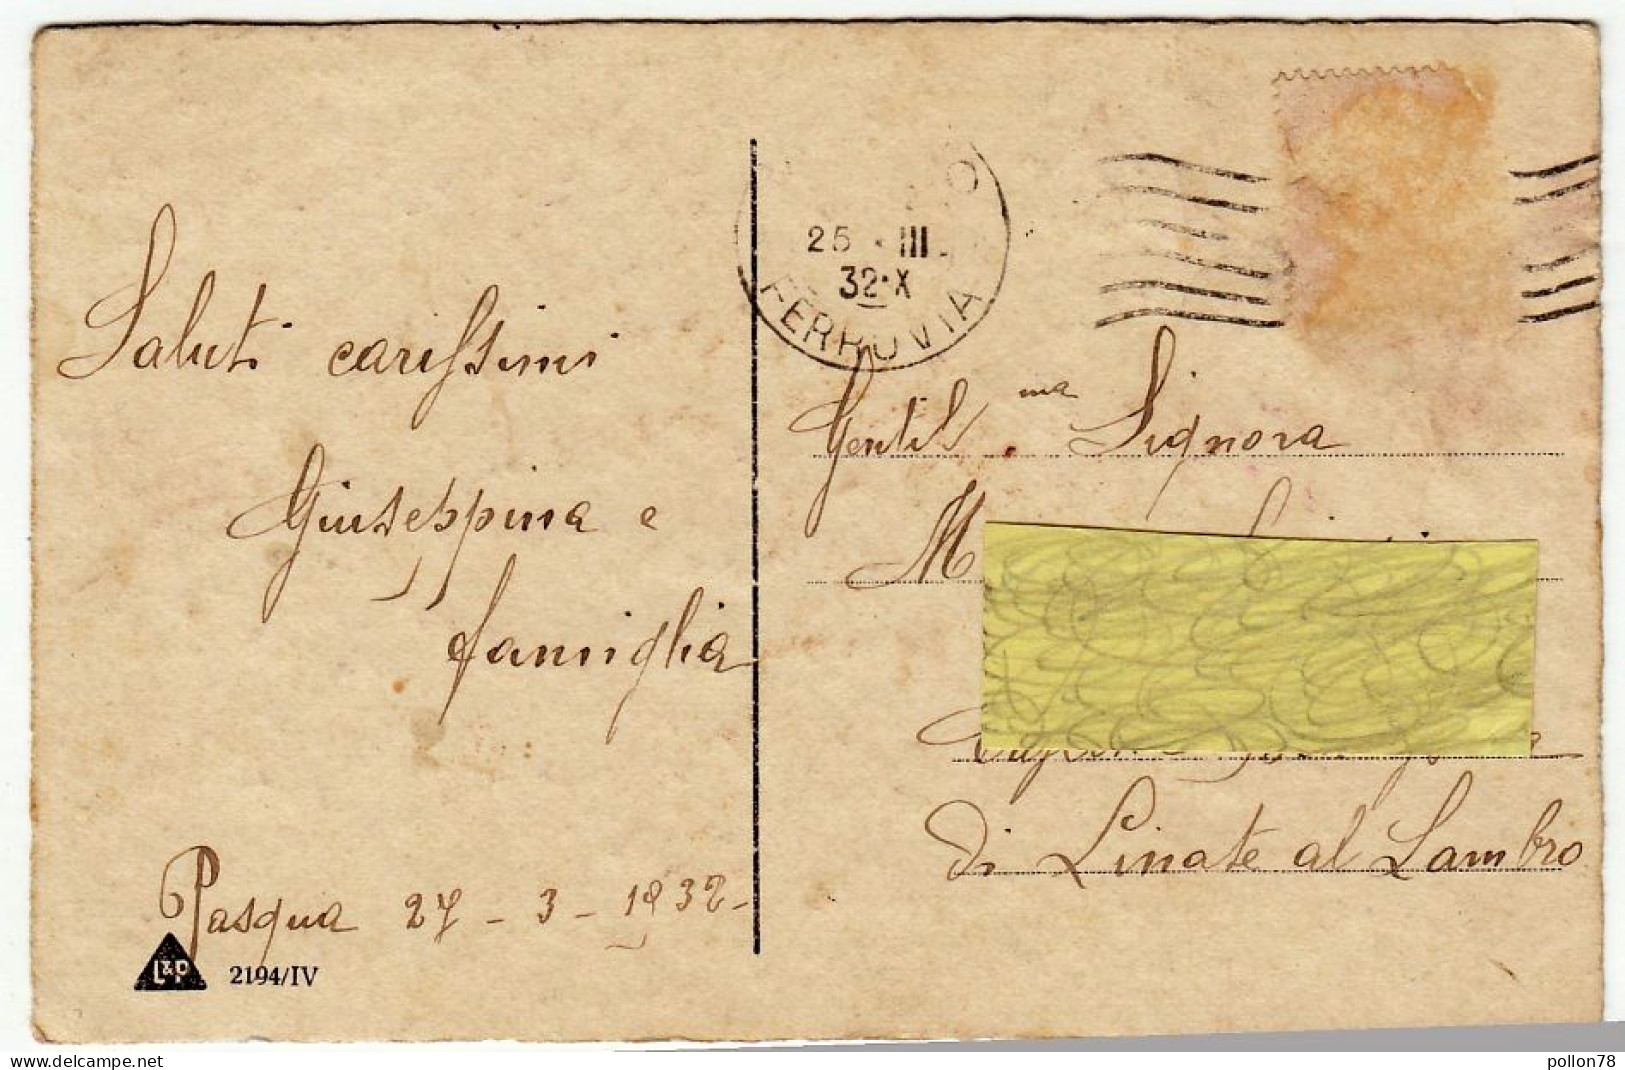 25 · III.
32·X
FERROVIA
Saluti carissimi
Giuseppina e
famiglia
Pasqua 27 - 3 - 1932 -
L&P 2194/IV
Gentil.ma Signora
M
di Linate al Lambro
www.delcampe.net
pollon78